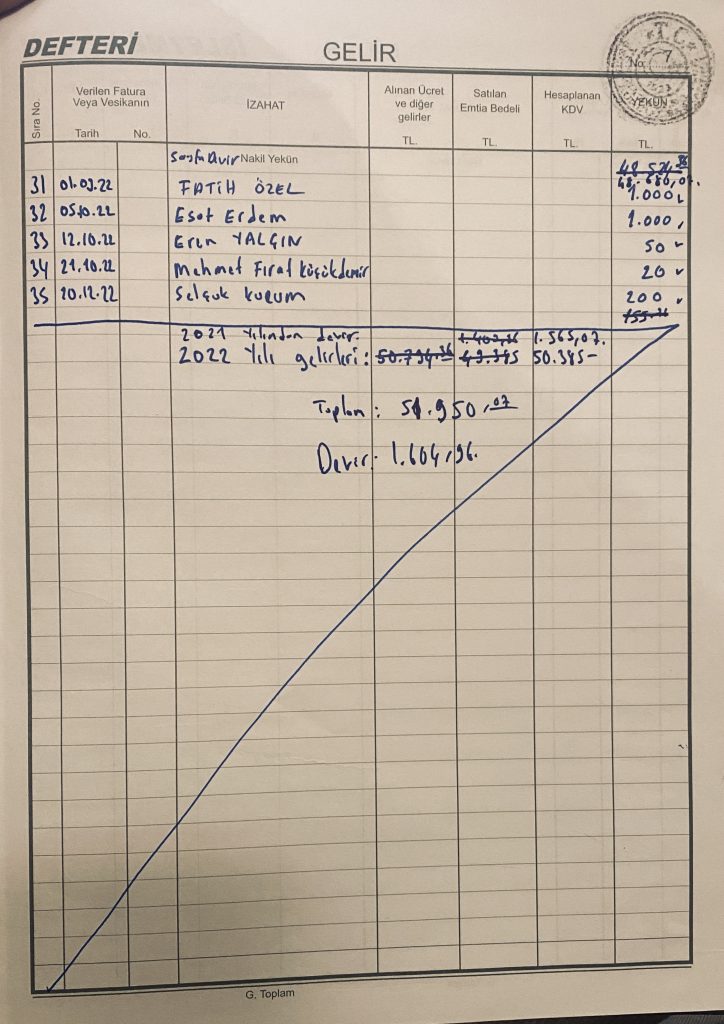 DEFTERİ GELİR
T.C.
No. 7
Sıra No. Verilen Fatura Veya Vesikanın İZAHAT Alınan Ücret ve diğer gelirler Satılan Emtia Bedeli Hesaplanan KDV YEKÜN
Tarih No. TL. TL. TL. TL.
Sayfa Devir Nakil Yekün
48.686,07.
31 01.09.22 FATİH ÖZEL 1.000
32 05.10.22 Esat Erdem 1.000
33 12.10.22 Eren YALÇIN 50
34 21.10.22 Mehmet Fırat Küçükdemir 20
35 20.12.22 Selçuk Kurum 200
155.36
2021 Yılından devir. 1.402,36 1.565,07.
2022 Yılı gelirleri: 50.794.36 49.345 50.385-
Toplam: 51.950,07
Devir: 1.604,96.
G. Toplam